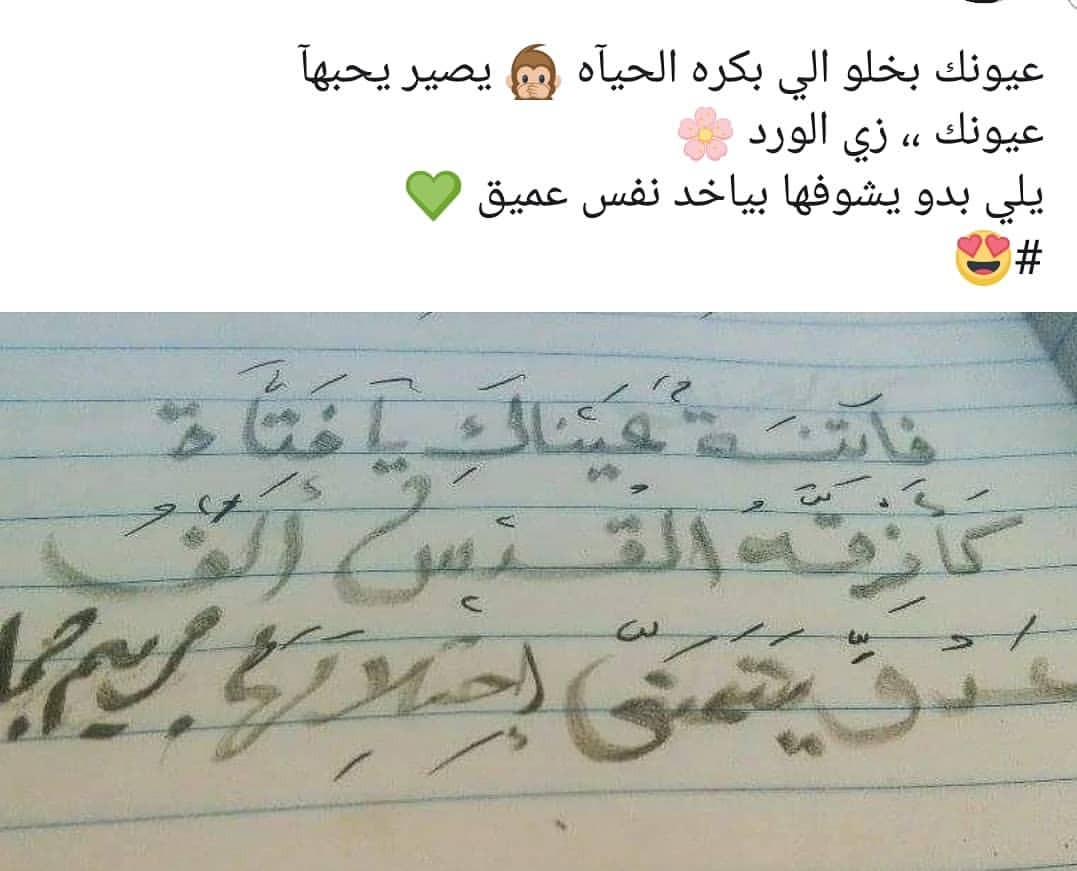 عيونك بخلو الي بكره الحيآه 🙊 يصير يحبهآ
عيونك ،، زي الورد 🌸
يلي بدو يشوفها بياخد نفس عميق 💚
#😍
فَاتِنَةٌ عَيْنَاكِ يَا فَتَاة
كَأَزِقَّةُ القُدْسِ أَلْفُ
عَدُوٍّ يَتَمَنَّى إِحْتِلَالِهَا